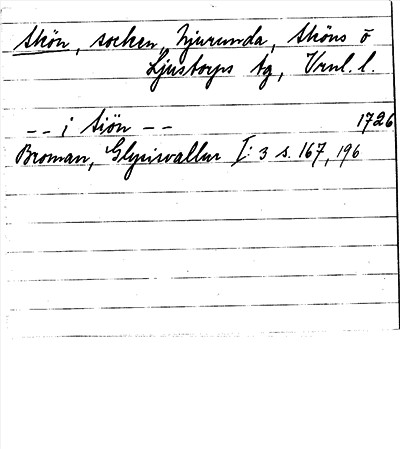 Skön, socken, Njurunda, Sköns o
Ljustorps tg, Vrnl. l.
-- i Siön -- 1726
Broman, Glysisvallur I: 3 s. 167, 196